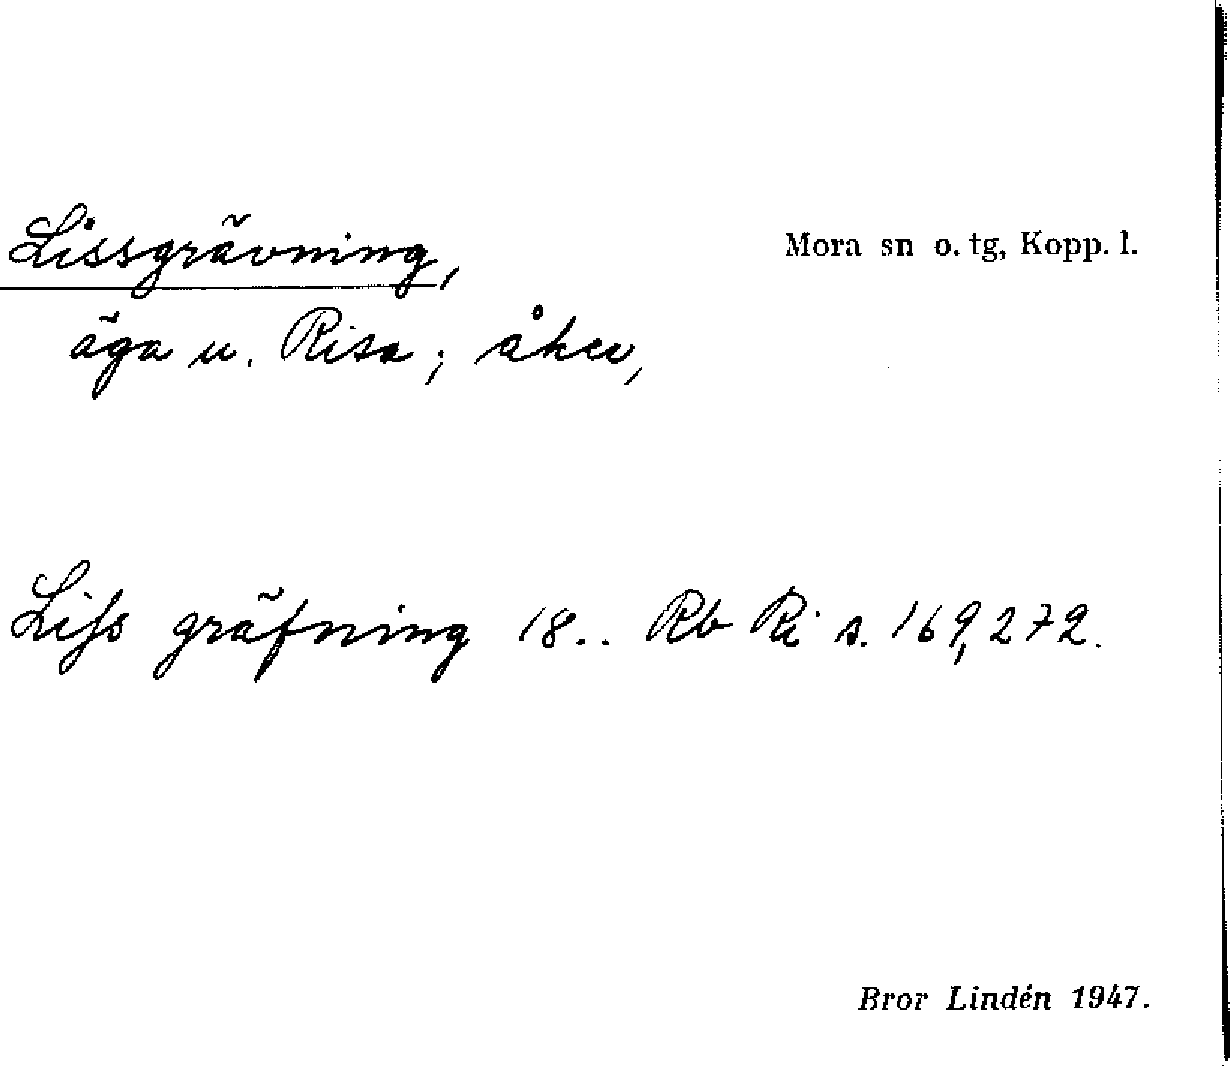 Lissgrävning,
Mora sn o. tg, Kopp. l.
äga u. Risa; åker,
Lifs gräfning 18.. Rb Ri s. 169, 272.
Bror Lindén 1947.